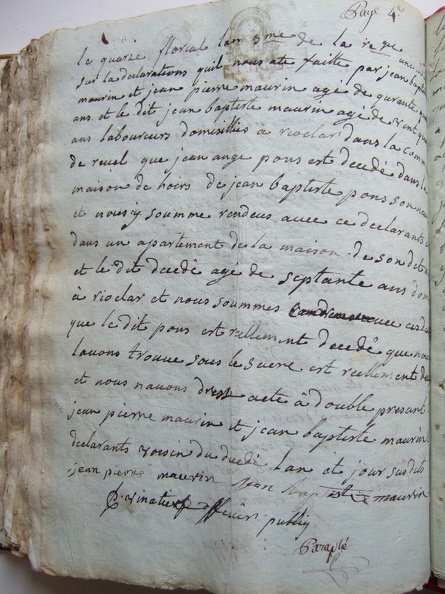 Page 4e
le quatre floreal lan 3me de la re que une
sur la declarations quil nous ate faitte par jean baptiste
maurin et jean pierre maurin age de quarante
ans et le dit jean baptiste maurin age de vint
ans laboureurs domisillies a rioclar dans la comm
de reuel que jean ange pons est decedé dans le
maison de hoirs de jean baptiste pons son
et nous y somme rendeus avec ce declarants
dans un apartement de la maison de son dit
et le dit decedé agé de septante ans dom
à rioclar et nous soummes avec
que le dit pons est rellement decedé que nous
lavons trouve sous le suere est reellement de
et nous navons drest acte à double presant
jean pierre maurin et jean baptiste maurin
declarants voisin du decedé lan et jour susdits
jean pierre maurin jean baptiste maurin
officier public
Paraphé